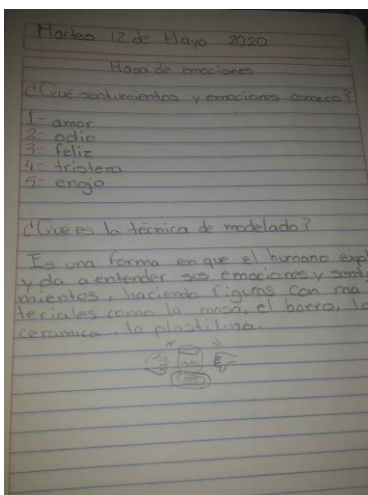 Martes 12 de Mayo 2020
Masa de emociones
¿Qué sentimientos y emociones conozco?
1- amor
2- odio
3- feliz
4- tristeza
5- enojo
¿Que es la técnica de modelado?
Es una forma en que el humano exp
y da a entender sus emociones y senti
mientos, haciendo figuras con ma
teriales como la masa, el barro, la
ceramica, la plastilina.